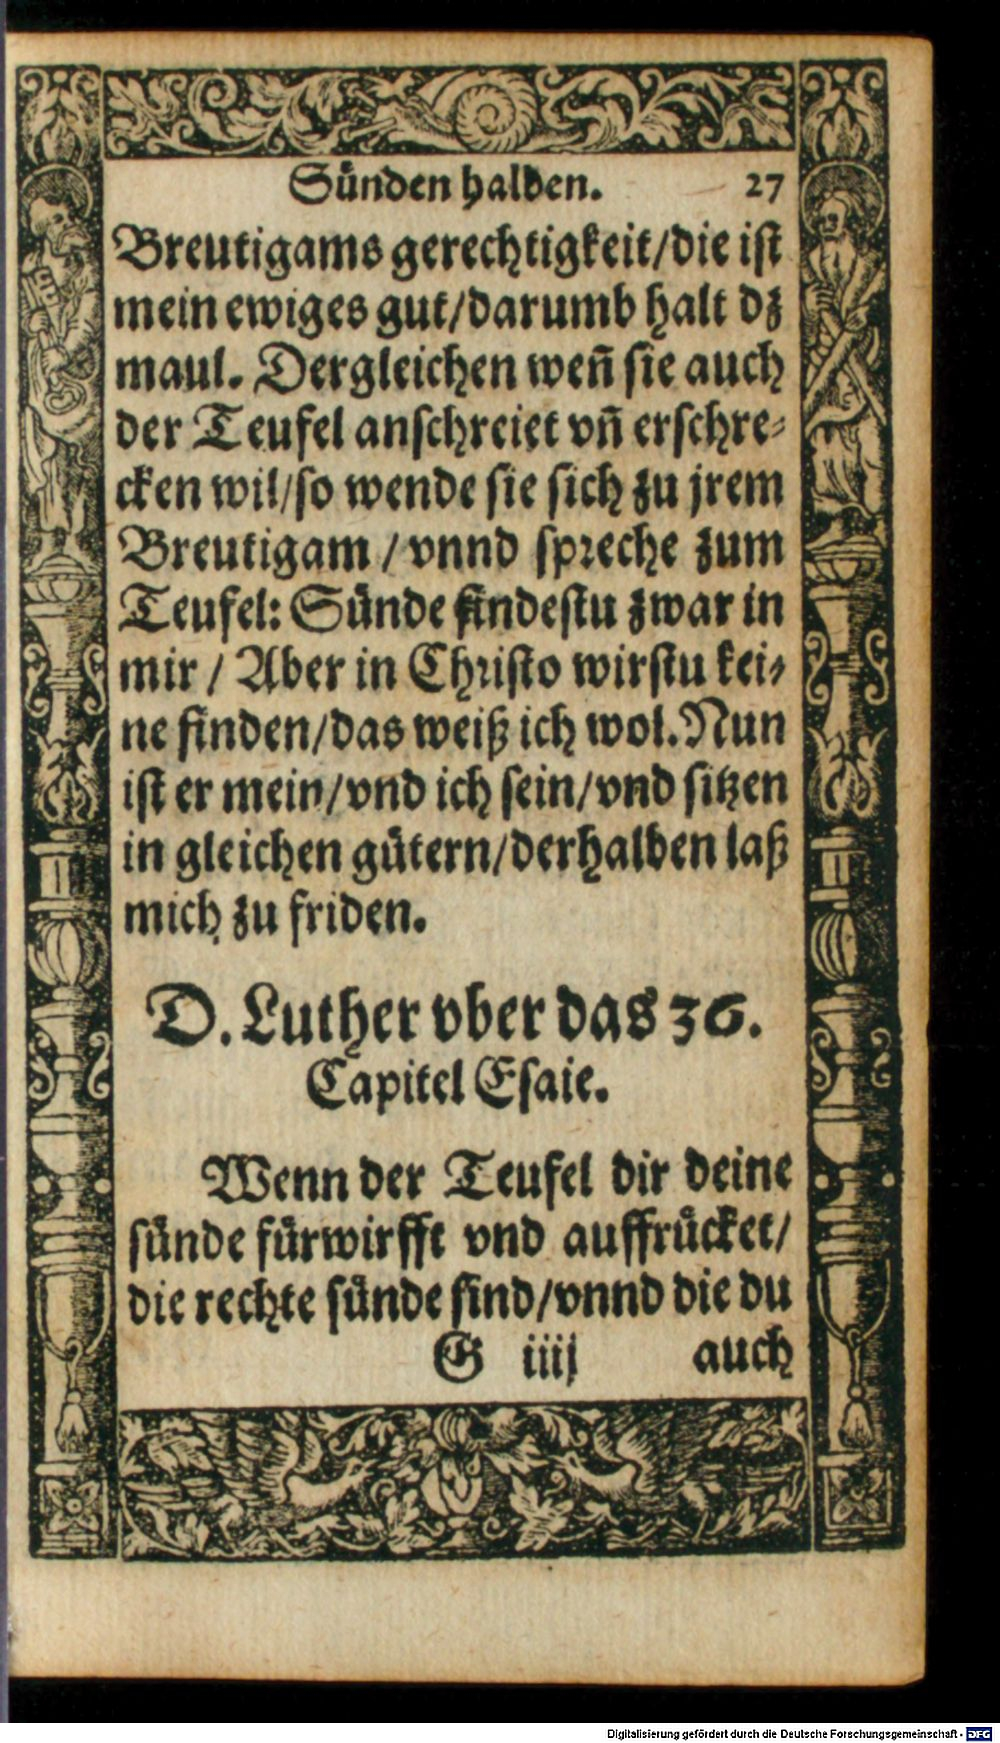 Sünden halben. 27
Breutigams gerechtigkeit/die ist
mein ewiges gut/darumb halt dz
maul. Dergleichen weñ sie auch
der Teufel anschreiet vñ erschre⸗
cken wil/so wende sie sich zu jrem
Breutigam / vnnd spreche zum
Teufel: Sünde findestu zwar in
mir / Aber in Christo wirstu kei⸗
ne finden/das weiß ich wol. Nun
ist er mein/vnd ich sein/vnd sitzen
in gleichen gütern/derhalben laß
mich zu friden.
D. Luther vber das 36.
Capitel Esaie.
Wenn der Teufel dir deine
sünde fürwirfft vnd auffrücket/
die rechte sünde sind/vnnd die du
G iiij auch
Digitalisierung gefördert durch die Deutsche Forschungsgemeinschaft - DFG